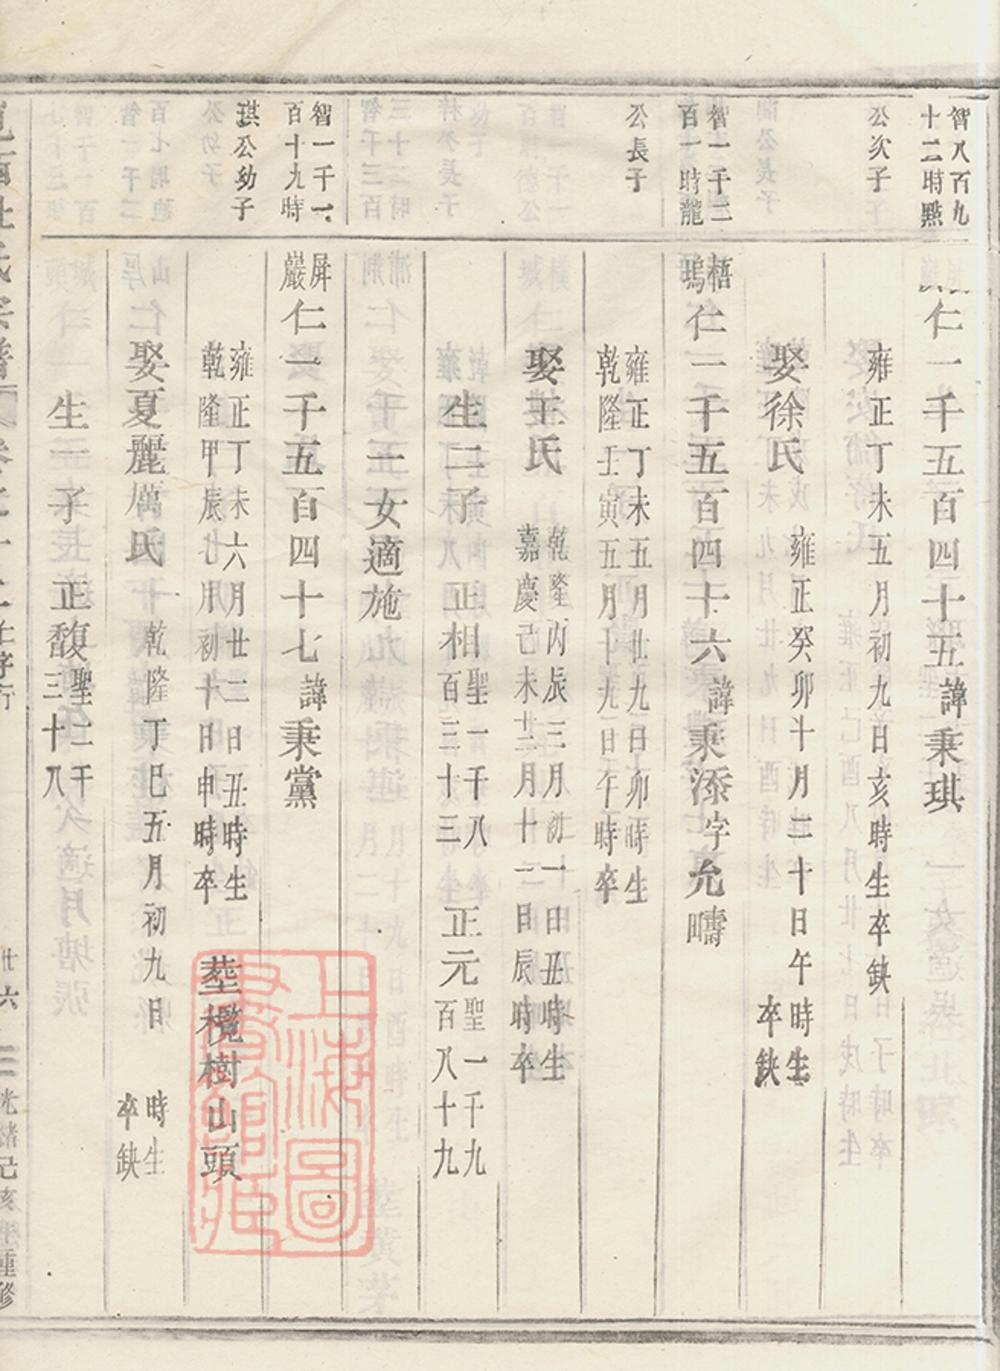 智八百九
十二時點
公次子
仁一千五百四十五諱秉琪
雍正丁未五月初九日亥時生卒缺
娶徐氏
雍正癸卯十月二十日午時生
卒缺
智一千二
百一時龍
公長子
梧
塢
仁一千五百四十六諱秉添字允疇
雍正丁未五月廿九日卯時生
乾隆壬寅五月十九日午時卒
娶王氏
乾隆丙辰三月初一日丑時生
嘉慶己未十二月十二日辰時卒
生二子
正相
聖一千八
百三十三
正元
聖一千九
百八十九
一女適施
智一千一
百十九時
琪公幼子
屏
巖
仁一千五百四十七諱秉黨
雍正丁未六月廿二日丑時生
乾隆甲辰七月初十日申時卒
塟欖樹山頭
娶夏麗厲氏
乾隆丁巳五月初九日
時生
卒缺
生一子
正馥
聖二千
三十八
杜氏宗譜
廿六
光緒己亥
重修
上海圖書館藏